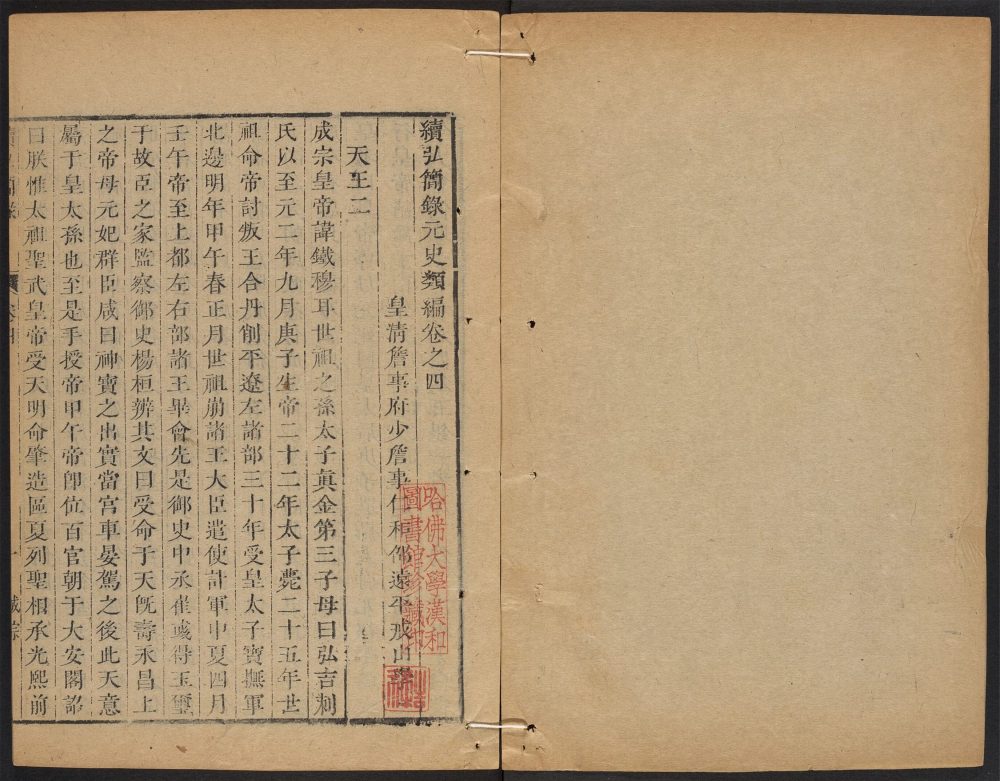 續弘簡錄元史類編卷之四
皇清詹事府少詹事仁和邵遠平戒山學
天王二
成宗皇帝諱鐵穆耳世祖之孫太子眞金第三子母曰弘吉剌
氏以至元二年九月庚子生帝二十二年太子薨二十五年世
祖命帝討叛王合丹削平遼左諸部三十年受皇太子寶撫軍
北邊明年甲午春正月世祖崩諸王大臣遣使訃軍中夏四月
壬午帝至上都左右部諸王畢會先是御史中丞崔彧得玉璽
于故臣之家監察御史楊桓辨其文曰受命于天旣壽永昌上
之帝母元妃群臣咸曰神寶之出實當宮車晏駕之後此天意
屬于皇太孫也至是手授帝甲午帝卽位百官朝于大安閣詔
曰朕惟太祖聖武皇帝受天明命肇造區夏列聖相承光熙前
哈佛大學漢和
圖書館珍藏印